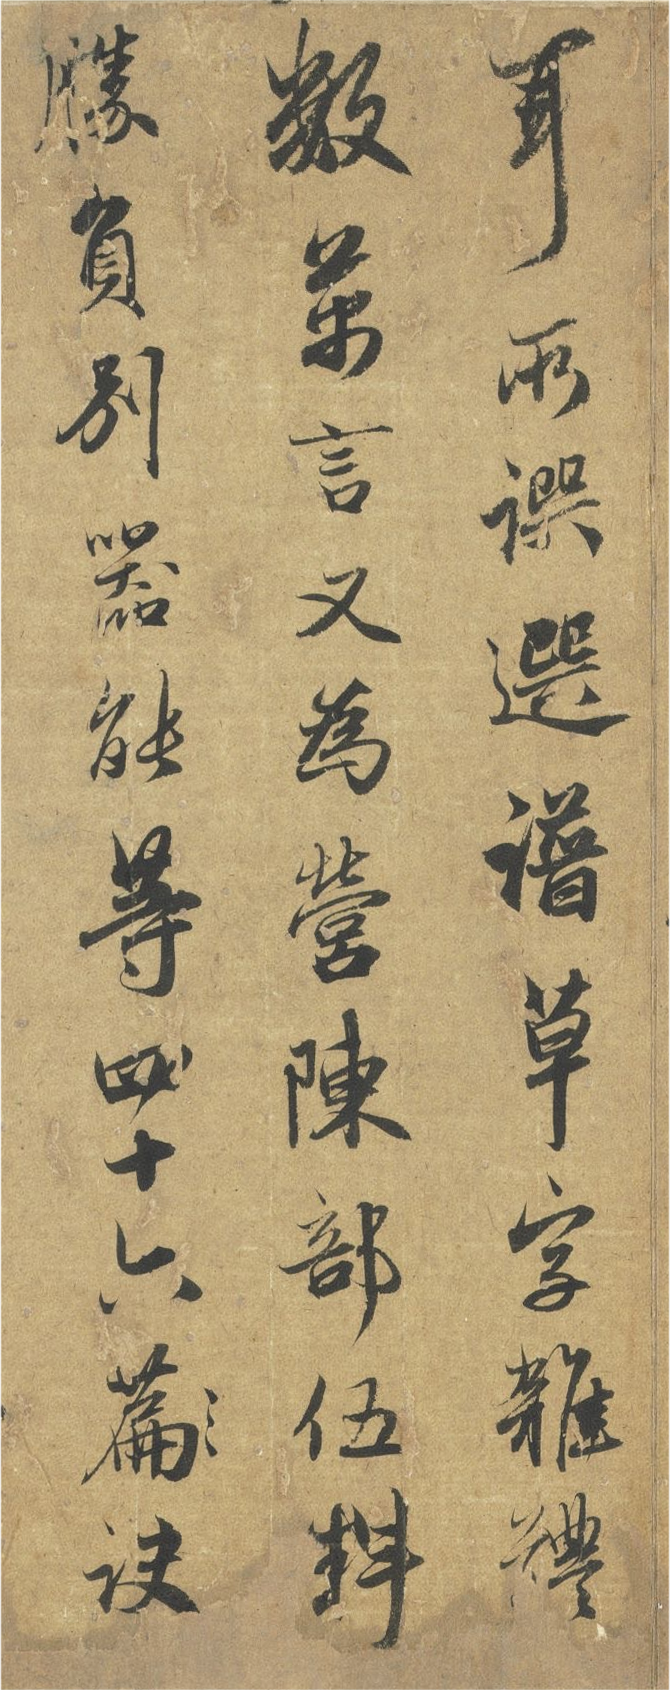 耳所譔選譜草字雜體
數萬言又為營陳部伍料
勝負別器能等四十六篇訣